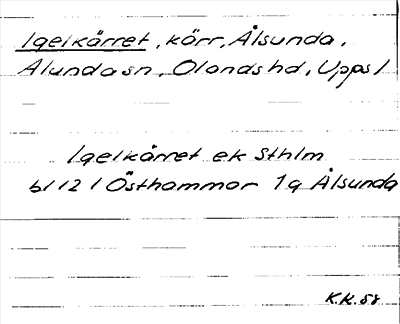 Igelkärret, kärr, Ålsunda,
Alunda sn, Olands hd, Uppsl
Igelkärret ek Sthlm
bl 121 Östhammar 1q Ålsunda
K.H. 58